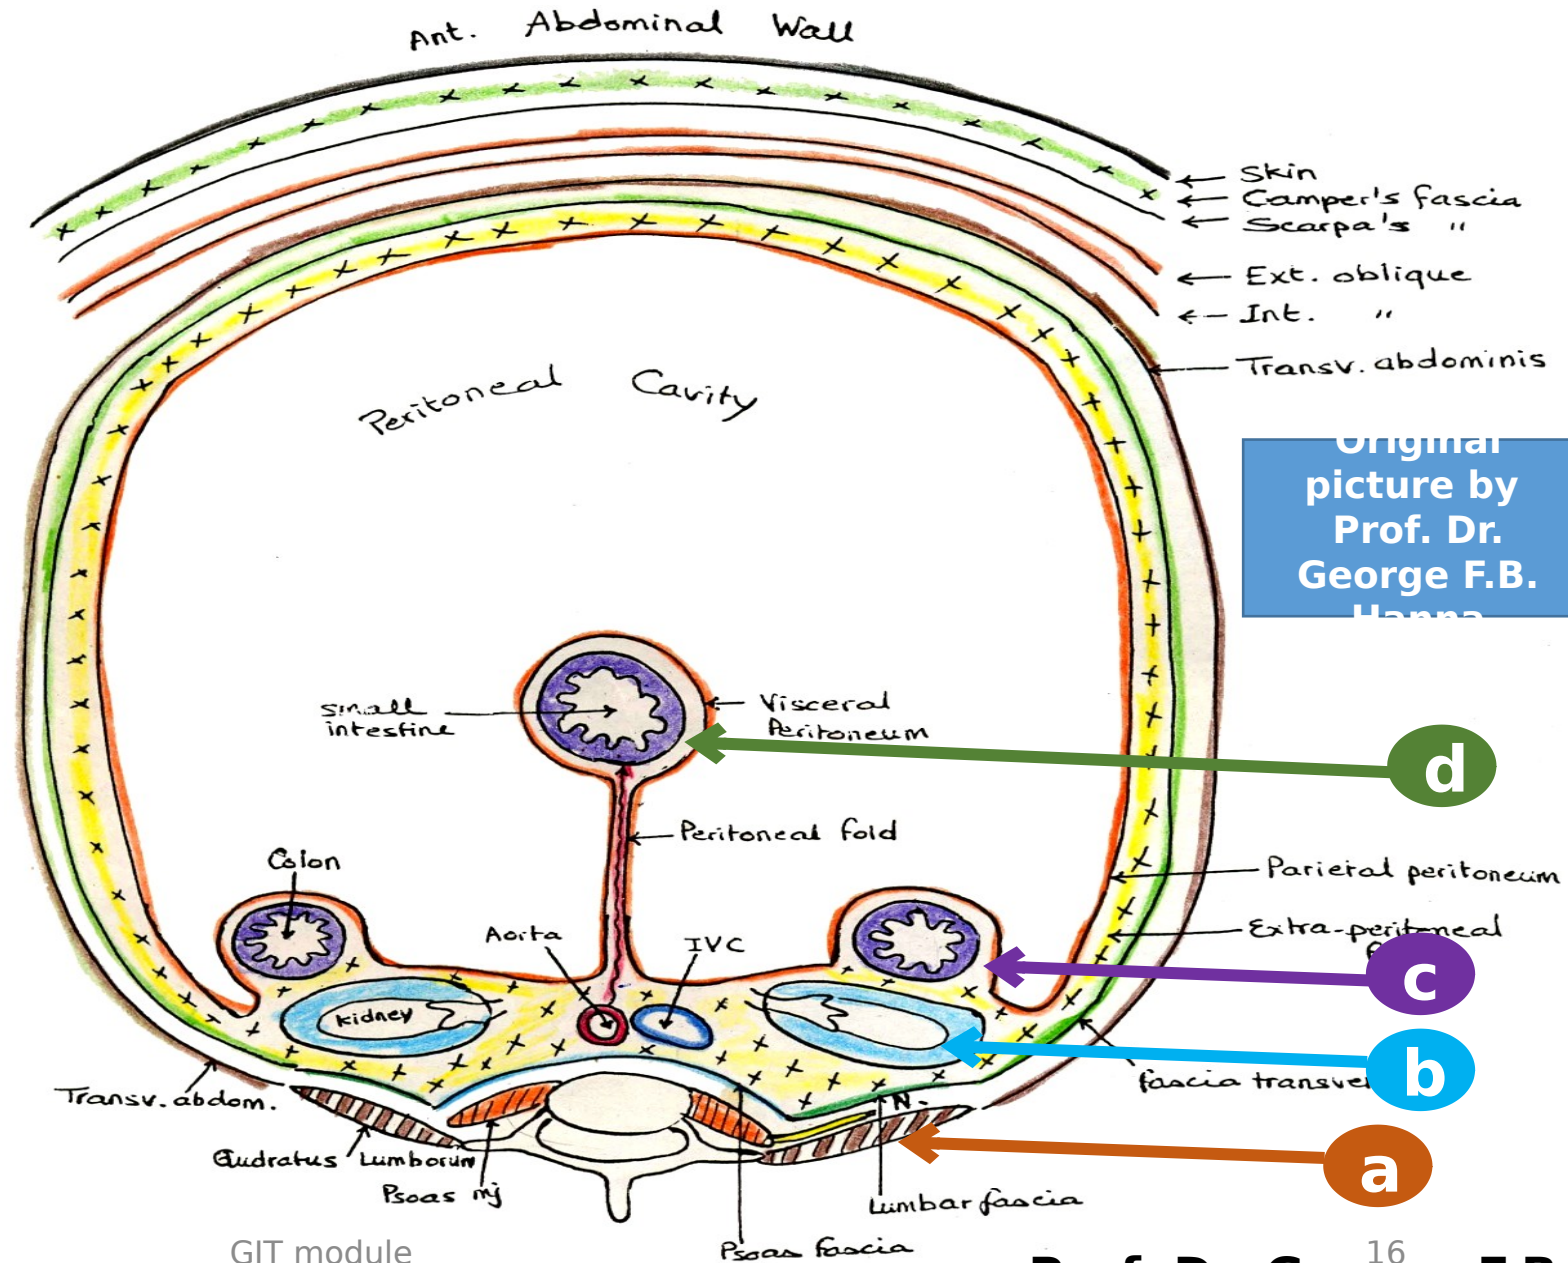 Ant. Abdominal Wall
Skin
Camper's fascia
Scarpa's "
Ext. oblique
Int. "
Transv. abdominis
Peritoneal Cavity
Original
picture by
Prof. Dr.
George F.B.
Hanna
small
intestine
Visceral
Peritoneum
d
Peritoneal fold
Colon
Parietal peritoneum
Aorta
IVC
Extra-peritoneal
c
kidney
b
fascia transver
Transv. abdom.
N.
a
Qudratus Lumborum
Psoas mj
Lumbar fascia
Psoas fascia
GIT module
16